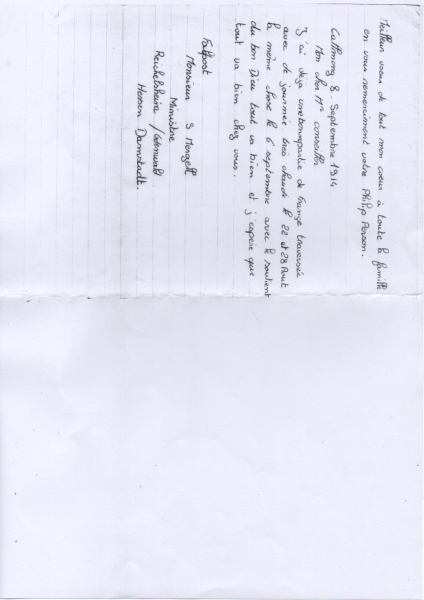 Meilleur voeux de tout mon coeur à toute la famille
en vous remerciment votre Philip Person.
Cattmong 8. Septembre 1914
Mon cher Mr consatter
J'ai déja une bonne partie de france traversée
avec de journée très chaude le 22 et 28 Aout
la même chose le 6 septembre avec le soutient
du bon Dieu tout va bien et j'espère que
tout va bien chez vous.
Faltpost
Monsieur S Mergell
Ministre
Reichelshein / Odenwald
Hessen Darmstadt.